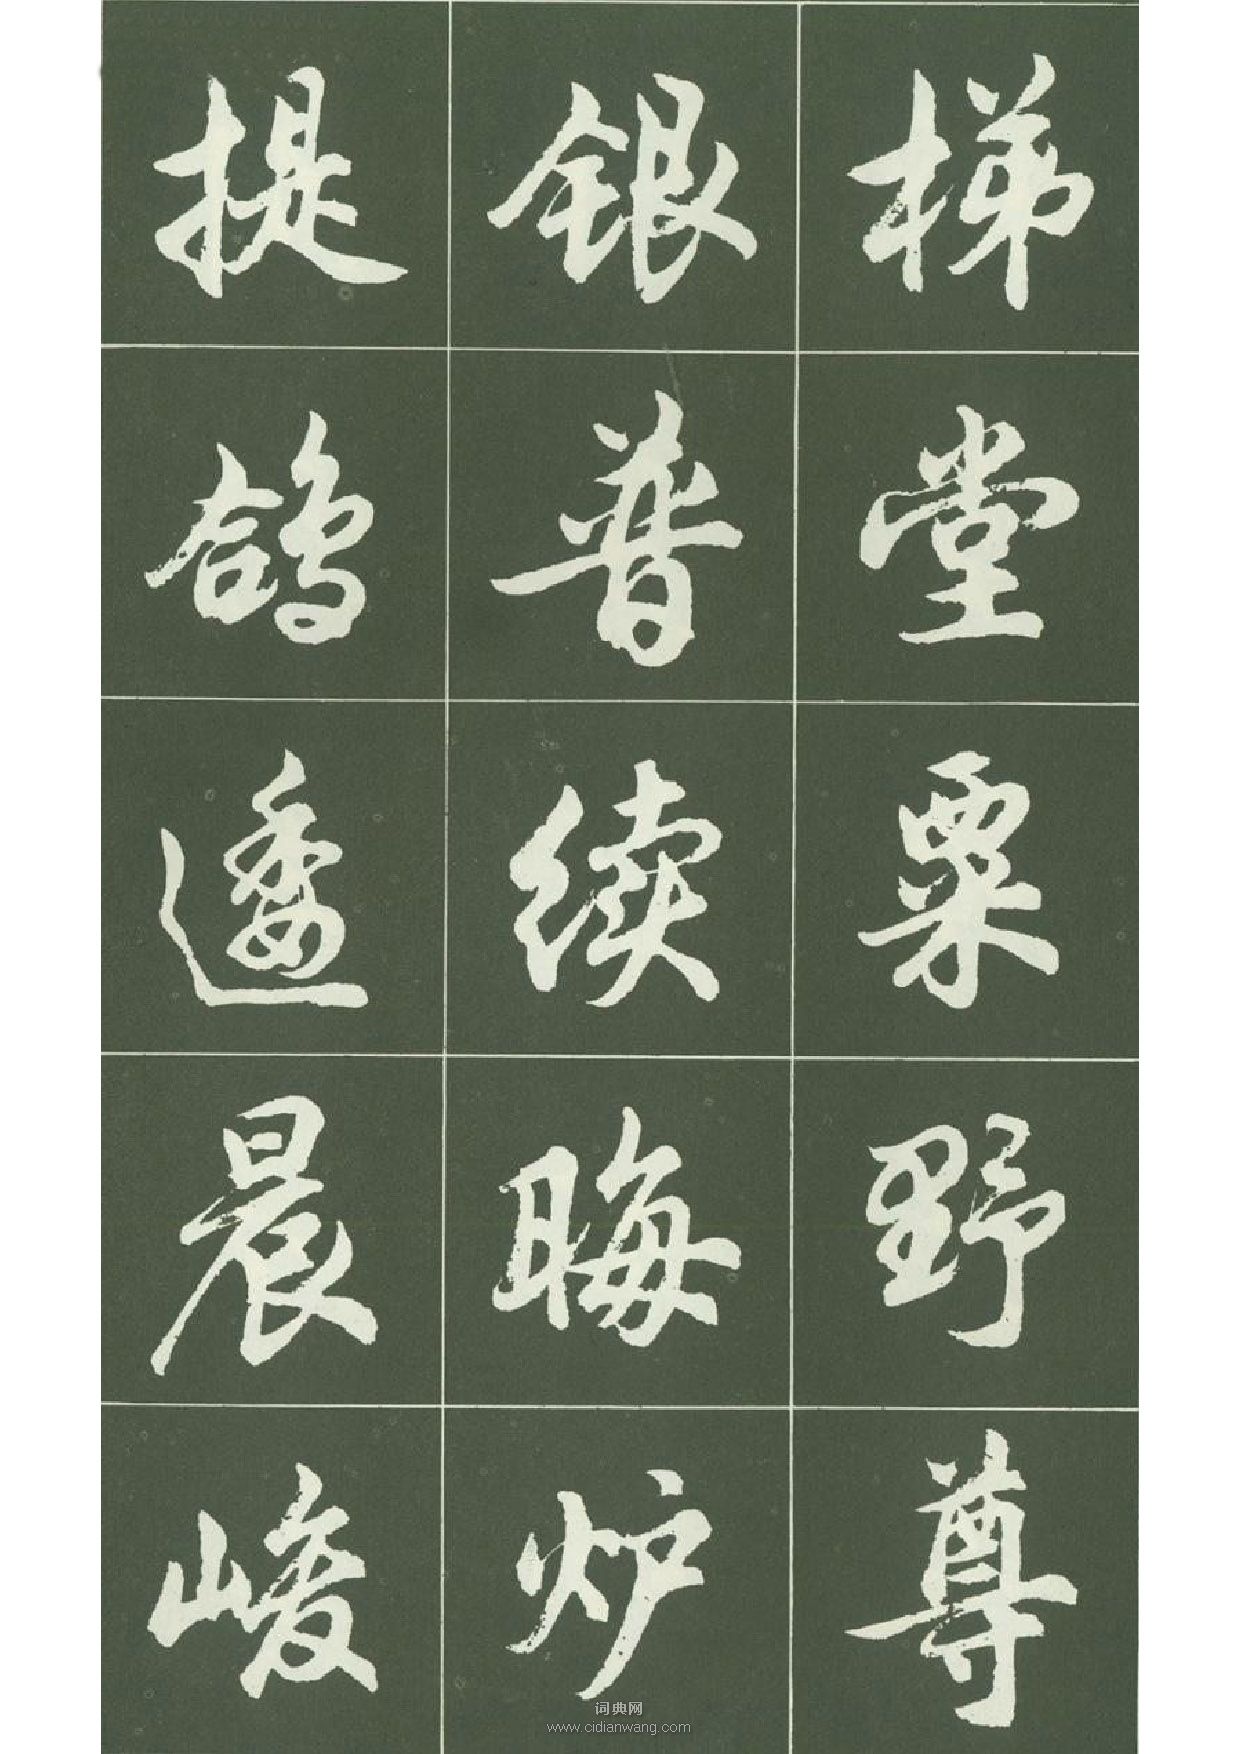 梯堂粟野尊
银普续晦炉
提鸽逶晨峻
词典网
www.cidianwang.com